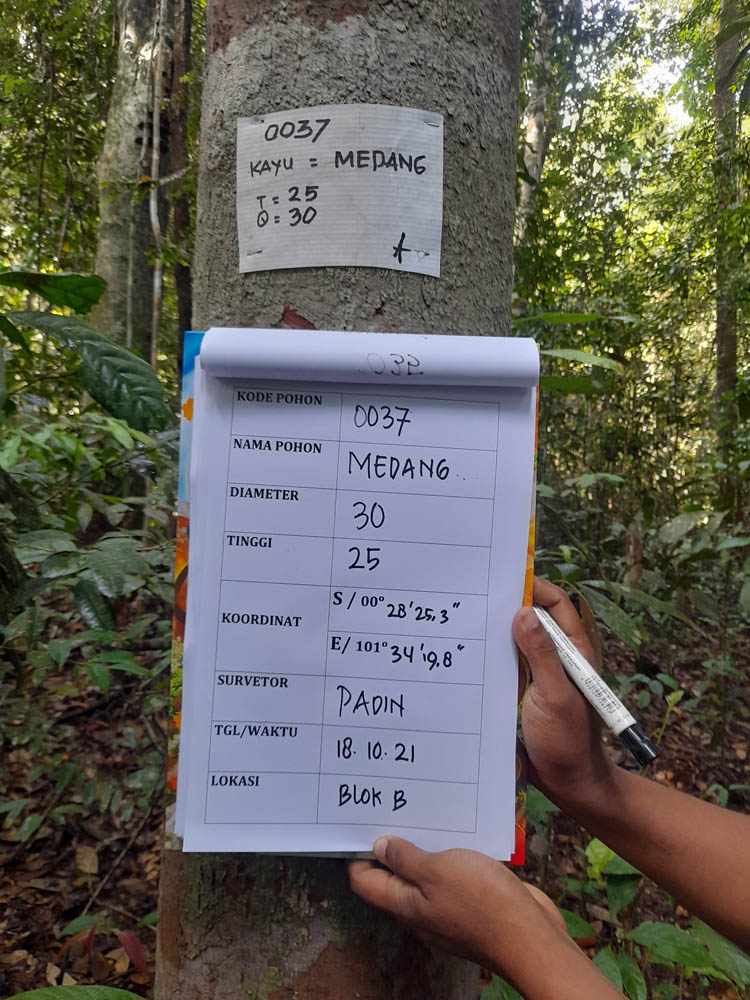 0037
KAYU = MEDANG
T = 25
Q = 30
KODE POHON 0037
NAMA POHON MEDANG
DIAMETER 30
TINGGI 25
KOORDINAT S / 00° 28'25,3"
E/ 101° 34'19,8"
SURVETOR PADIN
TGL/WAKTU 18. 10. 21
LOKASI BLOK B